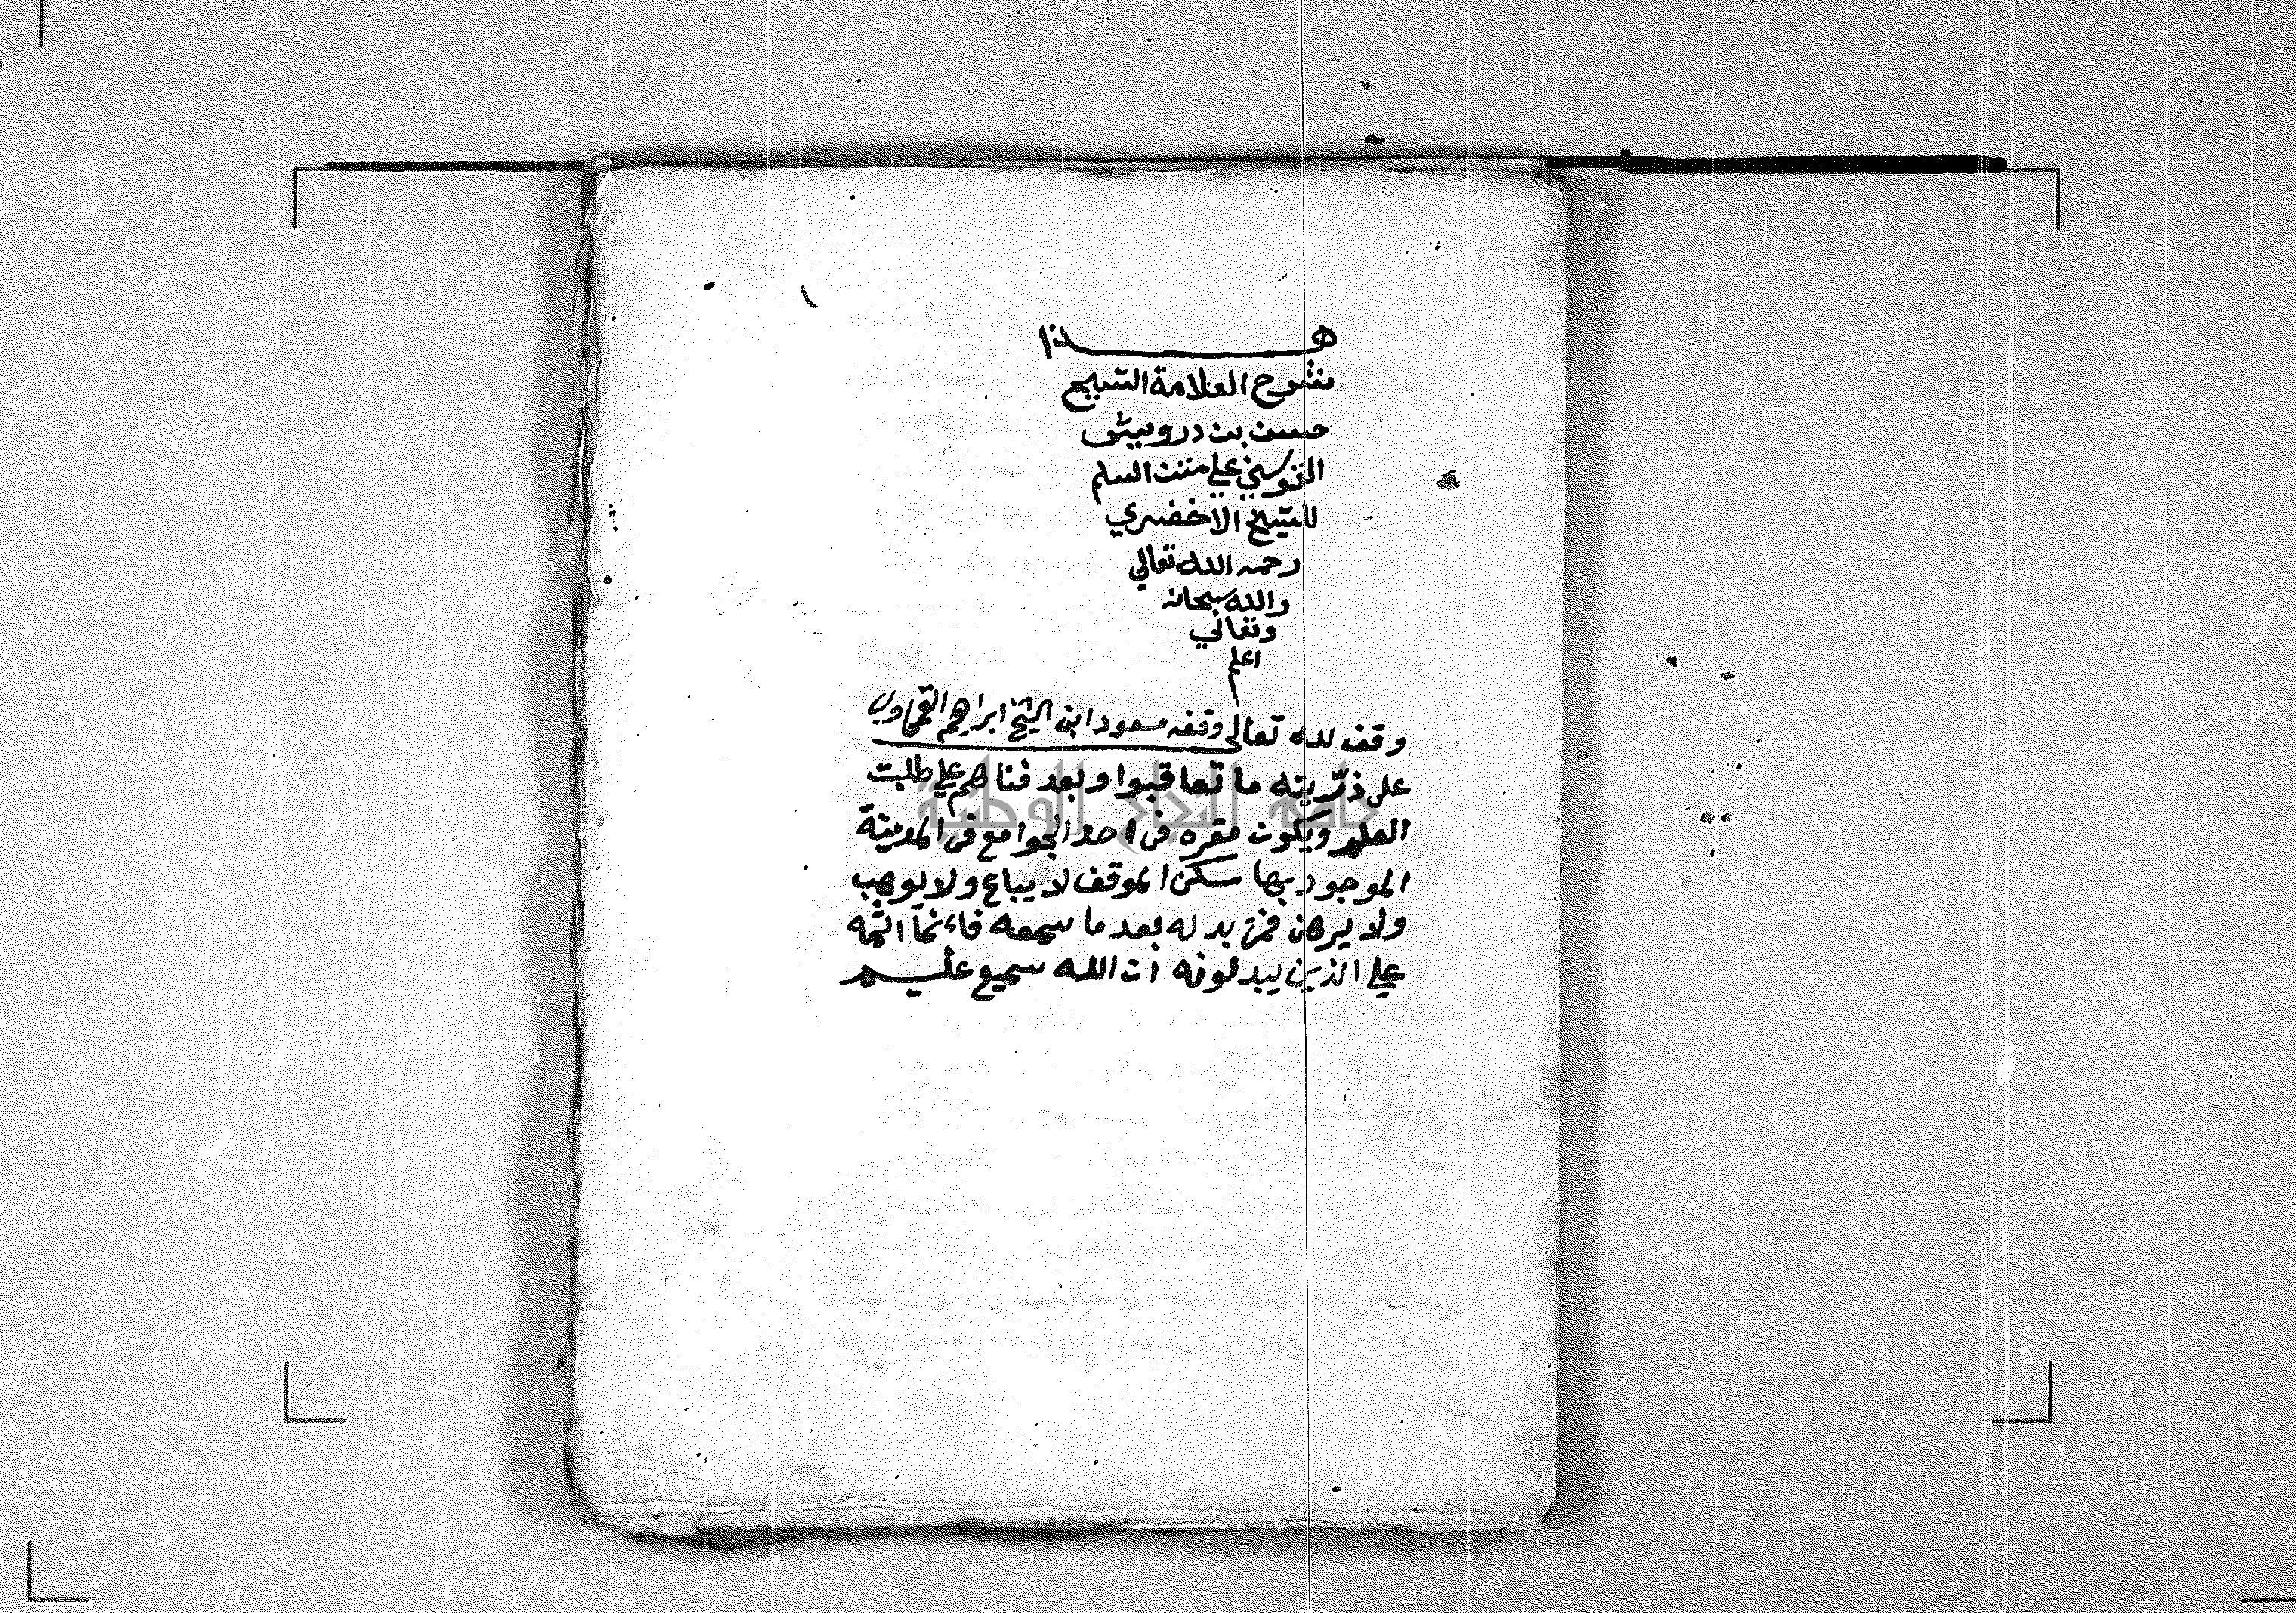 هذا
شرح العلامة الشيخ
حسن بن درويش
القويسني علي متن السلم
للشيخ الاخضري
رحمه الله تعالي
والله سبحانه
وتعالي
اعلم
وقف لله تعالى وقفه مسعود ابن الشيخ ابراهيم
على ذرّيته ما تعاقبوا وبعد فناهم علي طلبت
العلم ويكون مقره فى احد الجوامع فى المدينة
الموجود بها سكن الموقف لا يباع ولا يوهب
ولا يرهن فمن بدله بعد ما سمعه فاءنمآ اثمه
علي الذين يبدلونه ان الله سميع عليم
جامعة النجاح الوطنية